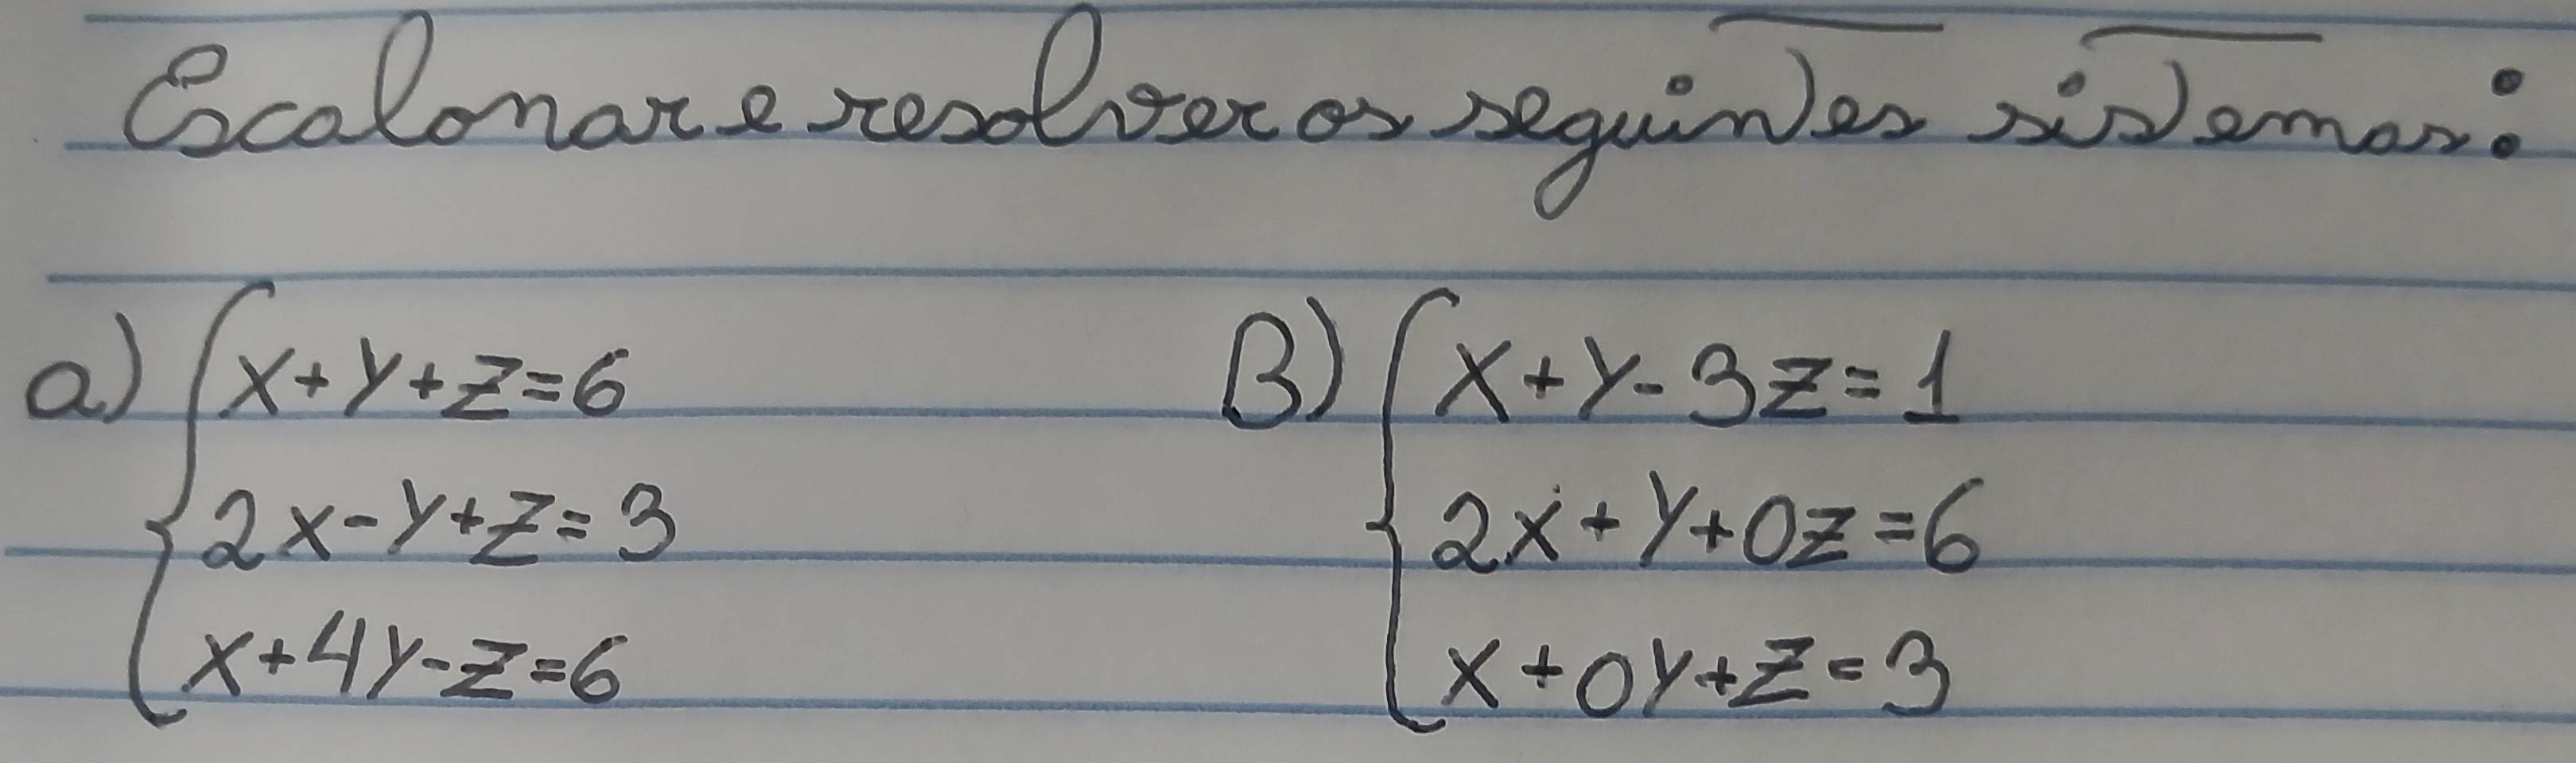 Escalonar e resolver os seguintes sistemas:
a) { x+y+z=6    B) { x+y-3z=1
2x-y+z=3    2x+y+0z=6
x+4y-z=6    x+0y+z=3